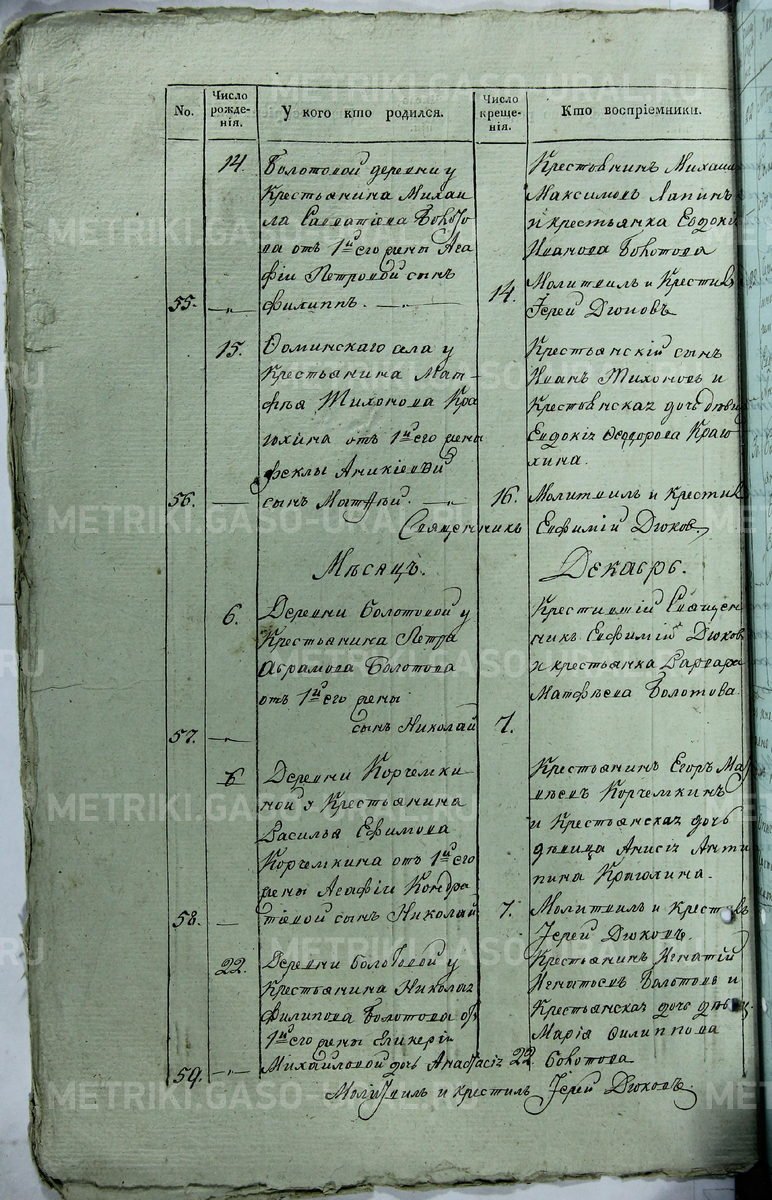 No.
Число рожденія.
У кого кто родился.
Число крещенія.
Кто воспріемники.
14.
Болотовой деревни у
Крестьянина Михаи
ла Савватіева Болото
ва отъ 1й его жены Ага
фіи Петровой сынъ
55.
Филиппъ.
Крестьянинъ Михаил
Максимовъ Лапинъ
и крестьянка Евдокі
Иванова Болотова
14.
Молитвилъ и Крестилъ
Іерей Дюковъ
15.
Ѳоминскаго села у
Крестьянина Мат-
фѣя Тихонова Кра
гохина отъ 1й его жены
Феклы Аникіевой
56.
сынъ Матѳѣй.
Крестьянскій сынъ
Иванъ Тихоновъ и
Крестьянская дочь дѣвиц
Евдокія Ѳеодорова Краго
хина.
16.
Молитвилъ и Крестилъ
Священникъ Евфимій Дюковъ
Мѣсяцъ. Декабрь.
6.
Деревни Болотовой у
Крестьянина Петра
Абрамова Болотова
отъ 1й его жены
57.
сынъ Николай
Крестившій Священ
никъ Евфимій Дюковъ
и крестьянка Варвара
Матфѣева Болотова
7.
6
Деревни Корчемки
ной у Крестьянина
Василья Ефимова
Корчемкина отъ 1й его
жены Агафіи Кондра
58.
тьевой сынъ Николай
Крестьянинъ Егоръ Мат
вѣевъ Корчемкинъ
и Крестьянская дочь
дѣвица Анисія Анти
пина
7.
Молитвилъ и крестилъ
Іерей Дюковъ.
22.
Деревни Болотовой у
Крестьянина Николая
Филипова Болотова отъ
1й его жены Гликеріи
59.
Михайловой дочь Анастасія
Крестьянинъ Игнатій
Игнатьевъ Болотовъ и
Крестьянская дочь дѣвиц.
Марія Филиппова
22.
Болотова
Молитвилъ и крестилъ Іерей Дюковъ.
METRIKI.GASO-URAL.RU